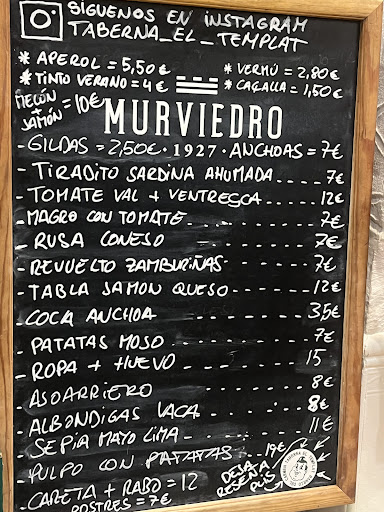 SIGUENOS EN INSTAGRAM
TABERNA_EL_TEMPLAT
* APEROL = 5,50€ * VERMÚ = 2,80€
* TINTO VERANO = 4€ * CAZALLA = 1,50€
MELÓN + JAMÓN = 10€
MURVIEDRO
- GILDAS = 2,50€ · 1927 · ANCHOAS = 7€
- TIRADITO SARDINA AHUMADA.... 7€
- TOMATE VAL + VENTRESCA...... 12€
- MAGRO CON TOMATE............ 7€
- RUSA CONESO................. 7€
- REVUELTO ZAMBURIÑAS......... 7€
- TABLA JAMON QUESO........... 12€
- COCA ANCHOA................. 3,5€
- PATATAS MOSO................ 7€
- ROPA + HUEVO................ 15
- ASOARRIERO.................. 8€
- ALBONDIGAS VACA............. 8€
- SEPIA MAYO LIMA............. 11€
- PULPO CON PATATAS... 19€
- CARETA + RABO = 12
POSTRES = 7€
DEJA
RESEÑA
PLIS